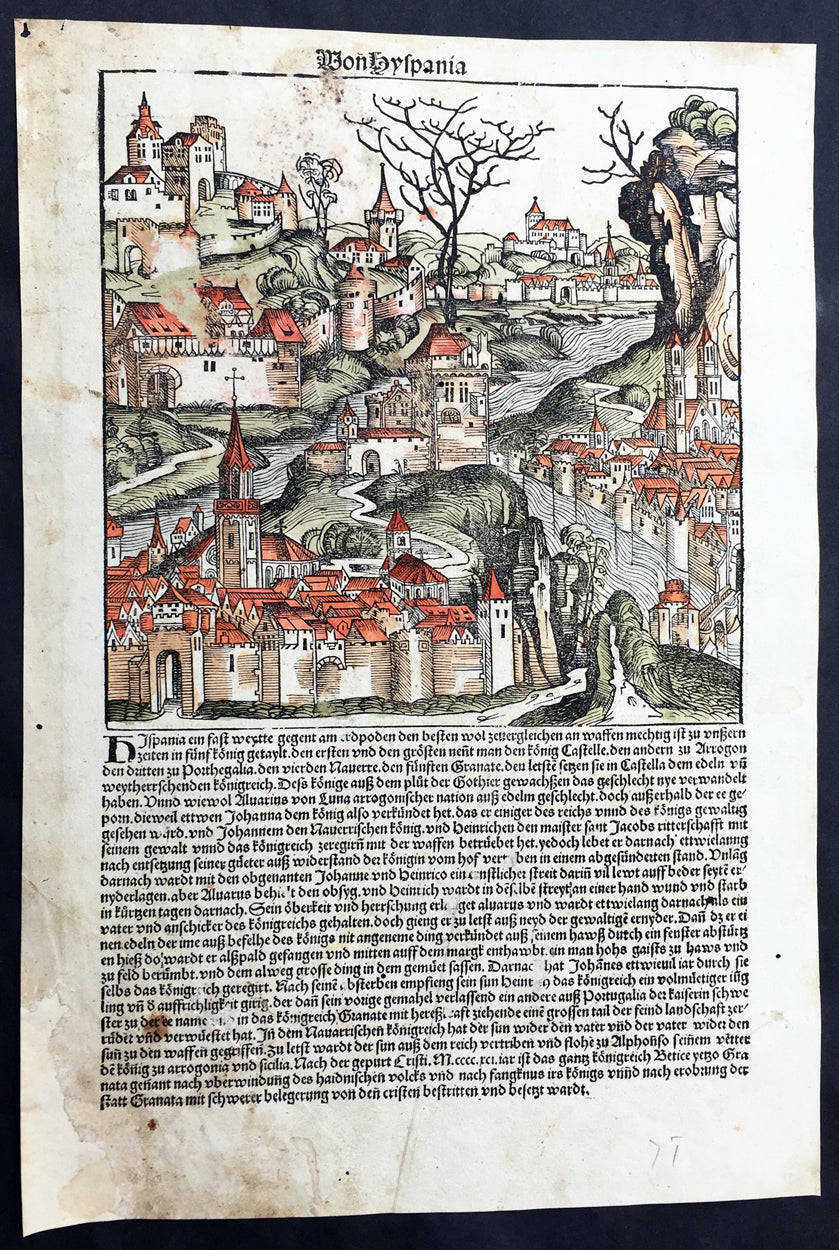 Von Hyspania
HIspania ein fast weytte gegent am erdpoden den besten wol zeuergleichen an waffen mechtig ist zu vnßern
zeiten in fünf könig getaylt. den ersten vnd den grösten neñt man den könig Castelle. den andern zu Arrogon
den dritten zu Porthegalia. den vierden Nauerre. den fünften Granate. den letstẽ setzen sie in Castella dem edeln vñ
weytherrschenden königreich. Deß könige auß dem plůt der Gothier gewachßen das geschlecht nye verwandelt
haben. Vnnd wiewol Aluarius von Luna arrogonischer nation auß edelm geschlecht. doch außerhalb der ee ge-
porn. dieweil ettwen Johanna dem könig also verkündet het. das er einiger des reichs vnnd des königs gewaltig
gesehen ward. vnd Johannem den Nauerrischen könig. vnd Heinrichen den maister sant Jacobs ritterschafft mit
seinem gewalt vnnd das königreich zeregirñ mit der waffen betrüebet het. yedoch lebet er darnach ettwielanng
nach entsetzung seiner güeter auß widerstand der königin vom hof ben in einem abgesünderten stand. Vnlãg
darnach wardt mit den obgenanten Johanne vnd Heinrico ein ernstlicher streit dariñ vil lewt auff beder seytẽ er-
nyderlagen. aber Aluarus den obsyg. vnd Heinrich wardt in dẽselbẽ streyt an einer hand wund vnd starb
in kürtzen tagen darnach. Sein öberkeit vnd herrschung get aluarus vnd wardt ettwielang darnach als ein
vater vnd anschicker des königreichs gehalten. doch gieng er zu letst auß neyd der gewaltigẽ ernyder. Dañ dz er ei
nen edeln der ime auß befelhe des königs nit angeneme ding verkündet auß seinem hawß durch ein fenster abstürtz
en hieß do wardt er alßpald gefangen vnd mitten auff dem margk enthawbt. ein man hohs gaists zu haws vnd
zu feld berümbt. vnd dem alweg grosse ding in dem gemüet sassen. Darnac hat Johãnes ettwieuil iar durch sie
selbs das königreich geregirt. Nach seinẽ absterben empfieng sein sun Heinr das königreich ein volmüetiger iüg
ling vñ d̃ auffrichligkeit girig. der dañ sein vorige gemahel verlassend ein andere auß Portugalia der kaiserin schwe
ster zu der ee name in das königreich Granate mit hereßkraft ziehende einẽ grossen tail der feind landschaft zer-
rüdet vnd verwüestet hat. Jn dem Nauarrischen königreich hat der sun wider den vater vñd der vater wider den
sun zu den waffen gegriffen. Zu letst wardt der sun auß dem reich vertriben vnd flohe zu Alphonso seinem vetter
dẽ könig zu arrogonia vnd sicilia. Nach der gepurt Cristi. M.cccc.xci. iar ist das gantz königreich Betice yetzo Gra
nata genant nach vberwindung des haidnischen volcks vnd nach fangknus irs königs vnnd nach erobrung der
statt Granata mit schwerer belegerung von deñ cristen bestritten vnd besetzt wardt.